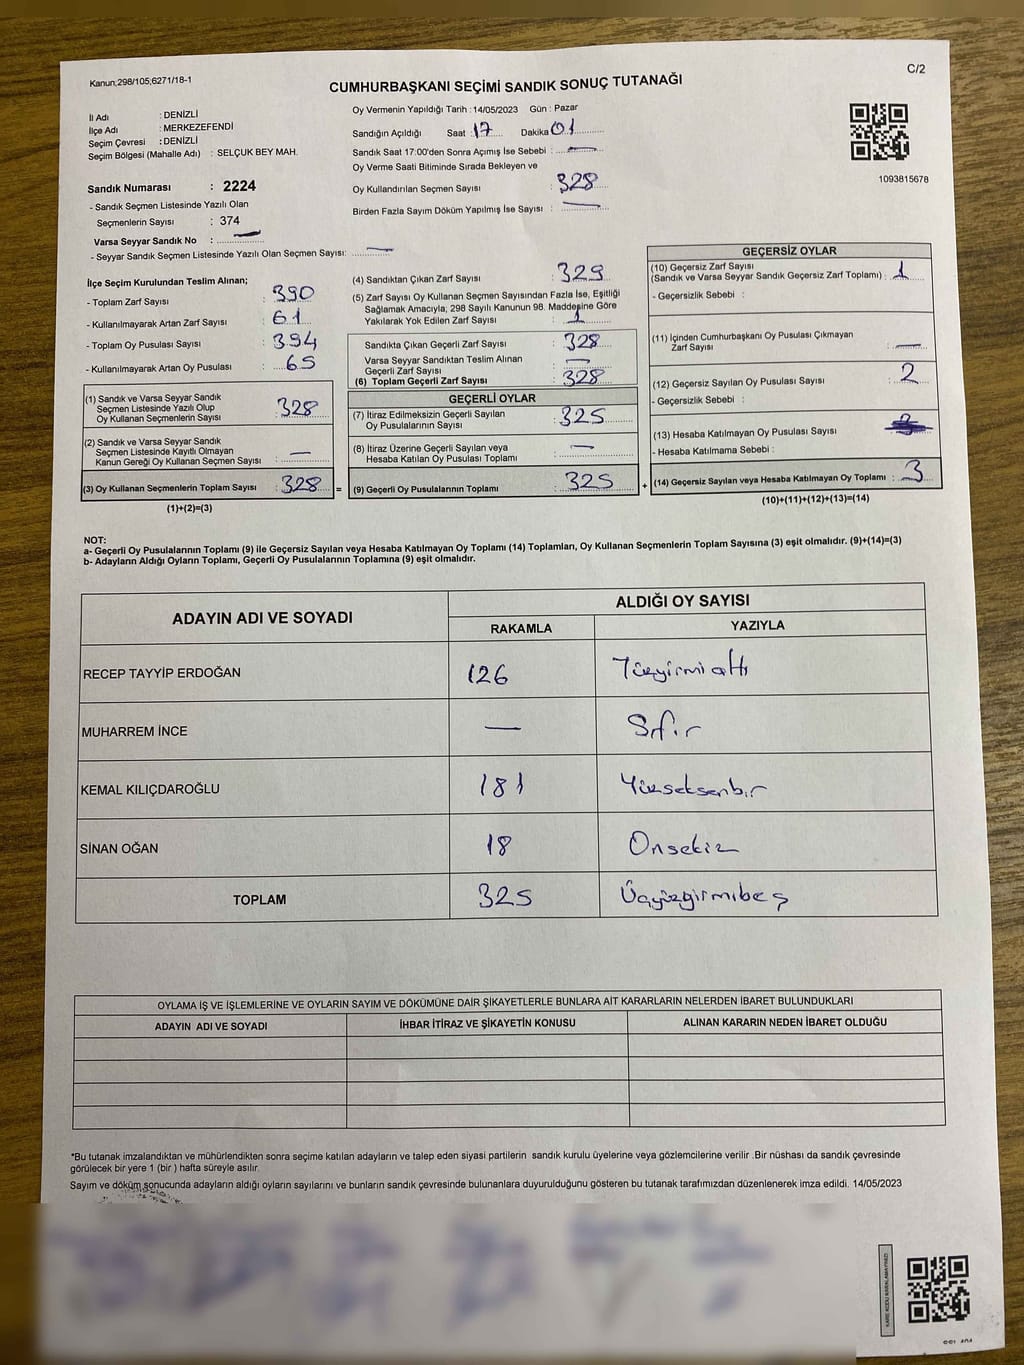 Kanun;298/105;6271/18-1
C/2
CUMHURBAŞKANI SEÇİMİ SANDIK SONUÇ TUTANAĞI
İl Adı : DENİZLİ
İlçe Adı : MERKEZEFENDİ
Seçim Çevresi : DENİZLİ
Seçim Bölgesi (Mahalle Adı) : SELÇUK BEY MAH.
Sandık Numarası : 2224
- Sandık Seçmen Listesinde Yazılı Olan
Seçmenlerin Sayısı : 374
Varsa Seyyar Sandık No : —
- Seyyar Sandık Seçmen Listesinde Yazılı Olan Seçmen Sayısı: —
Oy Vermenin Yapıldığı Tarih : 14/05/2023 Gün : Pazar
Sandığın Açıldığı Saat : 17 Dakika 01
Sandık Saat 17:00'den Sonra Açımış İse Sebebi : —
Oy Verme Saati Bitiminde Sırada Bekleyen ve
Oy Kullandırılan Seçmen Sayısı : 328
Birden Fazla Sayım Döküm Yapılmış İse Sayısı : —
1093815678
İlçe Seçim Kurulundan Teslim Alınan;
- Toplam Zarf Sayısı : 390
- Kullanılmayarak Artan Zarf Sayısı : 61
- Toplam Oy Pusulası Sayısı : 394
- Kullanılmayarak Artan Oy Pusulası : 65
(1) Sandık ve Varsa Seyyar Sandık
Seçmen Listesinde Yazılı Olup
Oy Kullanan Seçmenlerin Sayısı : 328
(2) Sandık ve Varsa Seyyar Sandık
Seçmen Listesinde Kayıtlı Olmayan
Kanun Gereği Oy Kullanan Seçmen Sayısı : —
(3) Oy Kullanan Seçmenlerin Toplam Sayısı : 328 =
(1)+(2)=(3)
(4) Sandıktan Çıkan Zarf Sayısı : 329
(5) Zarf Sayısı Oy Kullanan Seçmen Sayısından Fazla İse, Eşitliği
Sağlamak Amacıyla; 298 Sayılı Kanunun 98. Maddesine Göre
Yakılarak Yok Edilen Zarf Sayısı : 1
Sandıkta Çıkan Geçerli Zarf Sayısı : 328
Varsa Seyyar Sandıktan Teslim Alınan
Geçerli Zarf Sayısı : —
(6) Toplam Geçerli Zarf Sayısı : 328
GEÇERLİ OYLAR
(7) İtiraz Edilmeksizin Geçerli Sayılan
Oy Pusulalarının Sayısı : 325
(8) İtiraz Üzerine Geçerli Sayılan veya
Hesaba Katılan Oy Pusulası Toplamı : —
(9) Geçerli Oy Pusulalarının Toplamı : 325 +
GEÇERSİZ OYLAR
(10) Geçersiz Zarf Sayısı
(Sandık ve Varsa Seyyar Sandık Geçersiz Zarf Toplamı) : 1
- Geçersizlik Sebebi :
(11) İçinden Cumhurbaşkanı Oy Pusulası Çıkmayan
Zarf Sayısı : —
(12) Geçersiz Sayılan Oy Pusulası Sayısı : 2
- Geçersizlik Sebebi :
(13) Hesaba Katılmayan Oy Pusulası Sayısı :
- Hesaba Katılmama Sebebi :
(14) Geçersiz Sayılan veya Hesaba Katılmayan Oy Toplamı : 3
(10)+(11)+(12)+(13)=(14)
NOT:
a- Geçerli Oy Pusulalarının Toplamı (9) ile Geçersiz Sayılan veya Hesaba Katılmayan Oy Toplamı (14) Toplamları, Oy Kullanan Seçmenlerin Toplam Sayısına (3) eşit olmalıdır. (9)+(14)=(3)
b- Adayların Aldığı Oyların Toplamı, Geçerli Oy Pusulalarının Toplamına (9) eşit olmalıdır.
ADAYIN ADI VE SOYADI ALDIĞI OY SAYISI
RAKAMLA YAZIYLA
RECEP TAYYİP ERDOĞAN 126 Yüzyirmialtı
MUHARREM İNCE — Sıfır
KEMAL KILIÇDAROĞLU 181 Yüzseksenbir
SİNAN OĞAN 18 Onsekiz
TOPLAM 325 Üçyüzyirmibeş
OYLAMA İŞ VE İŞLEMLERİNE VE OYLARIN SAYIM VE DÖKÜMÜNE DAİR ŞİKAYETLERLE BUNLARA AİT KARARLARIN NELERDEN İBARET BULUNDUKLARI
ADAYIN ADI VE SOYADI İHBAR İTİRAZ VE ŞİKAYETİN KONUSU ALINAN KARARIN NEDEN İBARET OLDUĞU
*Bu tutanak imzalandıktan ve mühürlendikten sonra seçime katılan adayların ve talep eden siyasi partilerin sandık kurulu üyelerine veya gözlemcilerine verilir .Bir nüshası da sandık çevresinde
görülecek bir yere 1 (bir ) hafta süreyle asılır.
Sayım ve döküm sonucunda adayların aldığı oyların sayılarını ve bunların sandık çevresinde bulunanlara duyurulduğunu gösteren bu tutanak tarafımızdan düzenlenerek imza edildi. 14/05/2023